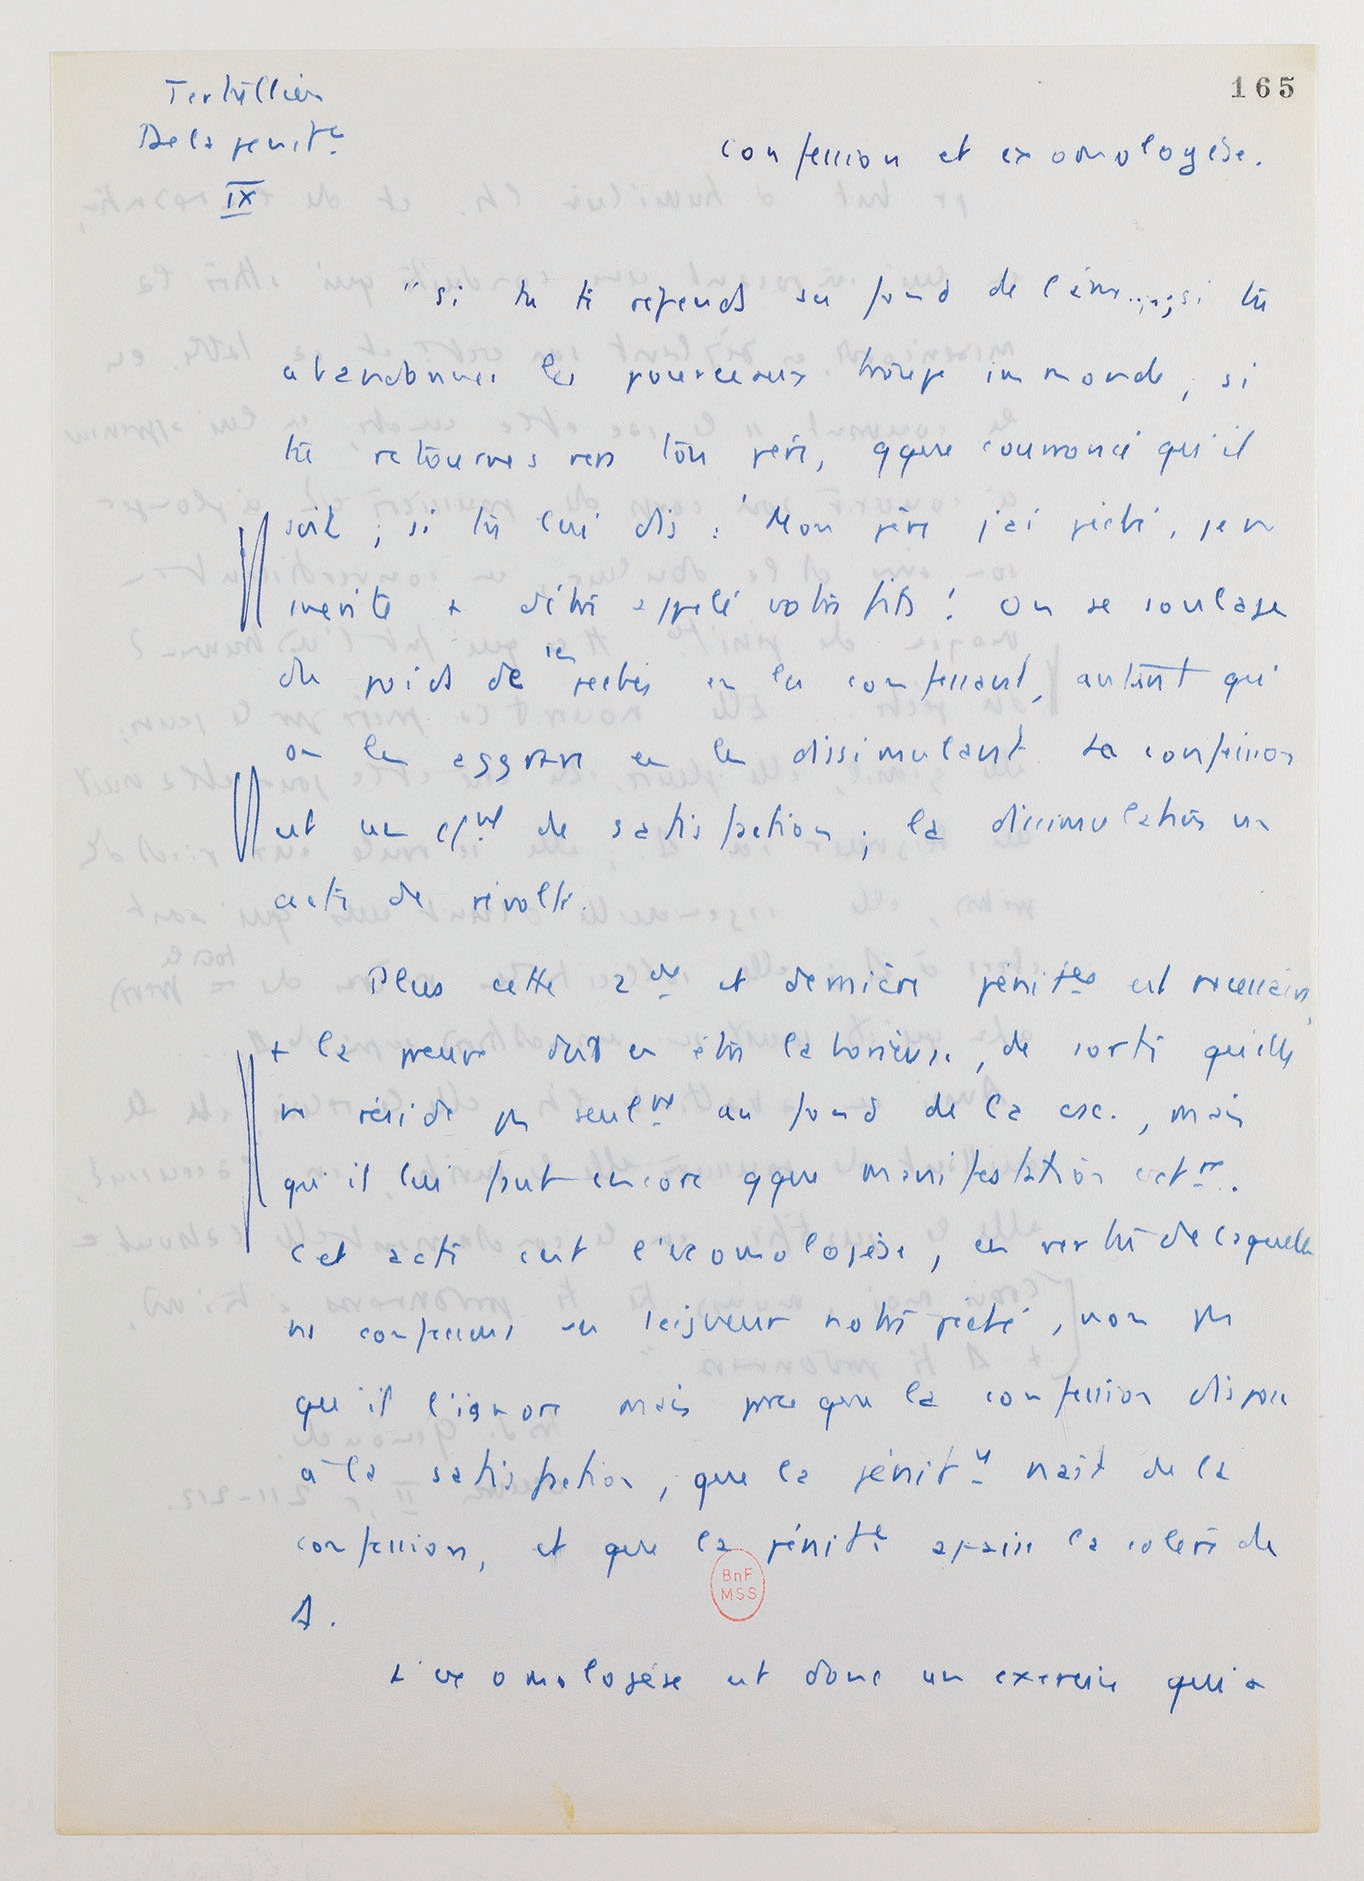 Tertullien
De la penitce
IX
165
confession et exomologèse.
"si tu te repends au fond de l'âme...; si tu
abandonnes les pourceaux troupe immonde, si
tu retournes vers ton père, qque courroucé qu'il
soit ; si tu lui dis : 'Mon père j'ai péché, je ne
mérite + d'être appelé votre fils'. On se soulage
du poids de ses péchés en les confessant, autant qu'
on les aggrave en les dissimulant. La confession
est un de satisfaction ; la dissimulation un
acte de révolte.
Plus cette 2de et dernière pénitce est nécessaire,
+ la preuve doit en être laborieuse, de sorte qu'elle
ne réside pas seult au fond de la csc., mais
qu'il lui faut encore qque manifestation extre.
Cet acte est l'exomologèse, en vertu de laquelle
ns confessons au seigneur notre péché, non pas
qu'il l'ignore mais parce que la confession dispose
à la satisfaction, que la pénitce naît de la
confession, et que la pénitce apaise la colère de
D.
BnF
MSS
L'exomologèse est donc un exercice qui a